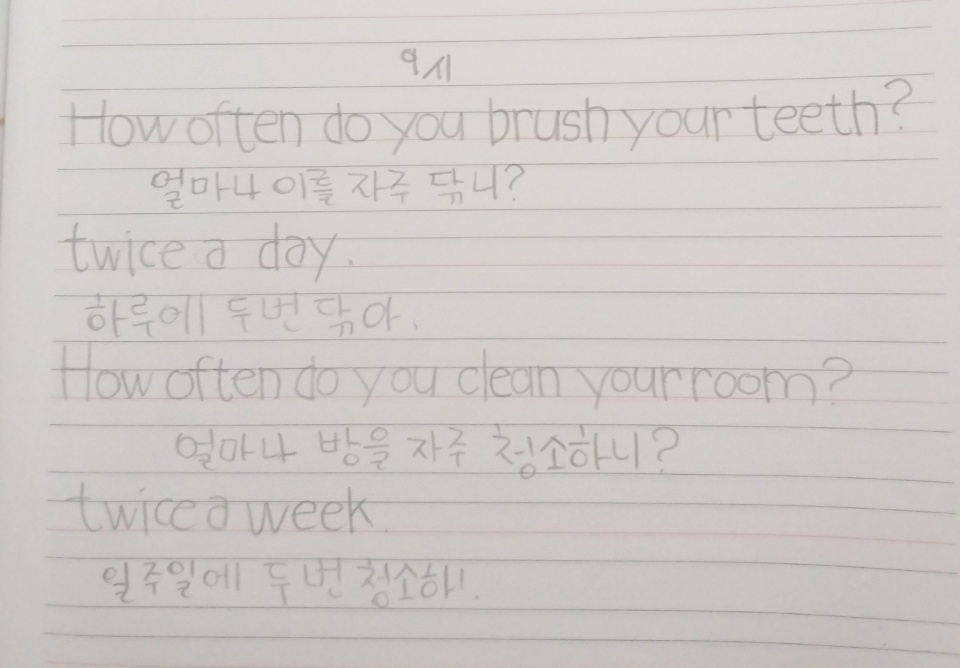 9시
How often do you brush your teeth?
얼마나 이를 자주 닦니?
twice a day.
하루에 두번 닦아.
How often do you clean your room?
얼마나 방을 자주 청소하니?
twice a week.
일주일에 두번 청소해.